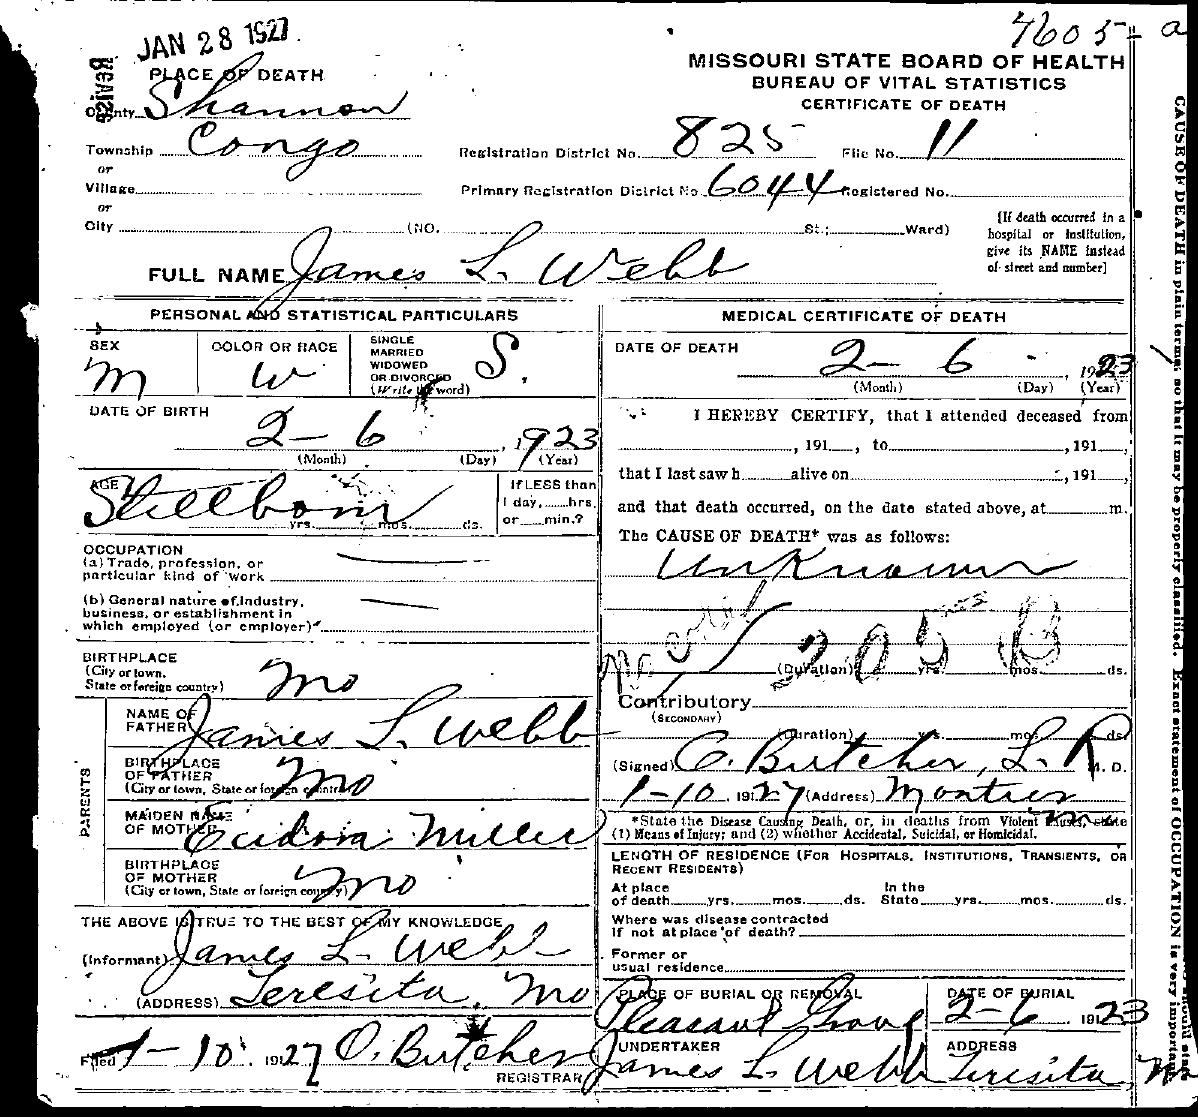 4605-a
JAN 28 1927
MISSOURI STATE BOARD OF HEALTH
BUREAU OF VITAL STATISTICS
CERTIFICATE OF DEATH
PLACE OF DEATH
County Shannon
Township Congo
or
Village
or
City (NO. St.; Ward)
Registration District No. 825 File No. 11
Primary Registration District No 6044 Registered No.
[If death occurred in a
hospital or institution,
give its NAME instead
of street and number]
FULL NAME James L. Webb
PERSONAL AND STATISTICAL PARTICULARS
SEX
M
COLOR OR RACE
W
SINGLE
MARRIED
WIDOWED
OR DIVORCED
(Write the word)
S.
DATE OF BIRTH
2-6, 1923
(Month) (Day) (Year)
AGE
Stillborn
yrs. mos. ds.
If LESS than
1 day, hrs.
or min.?
OCCUPATION
(a) Trade, profession, or
particular kind of work
(b) General nature of industry,
business, or establishment in
which employed (or employer)
BIRTHPLACE
(City or town,
State or foreign country)
Mo
PARENTS
NAME OF
FATHER James L. Webb
BIRTHPLACE
OF FATHER
(City or town, State or foreign country)
Mo
MAIDEN NAME
OF MOTHER Miller
BIRTHPLACE
OF MOTHER
(City or town, State or foreign country)
Mo
THE ABOVE IS TRUE TO THE BEST OF MY KNOWLEDGE
(Informant) James L. Webb
(ADDRESS) Teresita, Mo
Filed 1-10 1927 O. Butcher
REGISTRAR
MEDICAL CERTIFICATE OF DEATH
DATE OF DEATH
2-6, 1923
(Month) (Day) (Year)
I HEREBY CERTIFY, that I attended deceased from
, 191, to , 191,
that I last saw h alive on , 191,
and that death occurred, on the date stated above, at m.
The CAUSE OF DEATH* was as follows:
Unknown
205 B
(Duration) yrs. mos. ds.
Contributory
(SECONDARY)
(Duration) yrs. mos. ds.
(Signed) O. Butcher, L.R. M. D.
1-10 1927 (Address) Montier
Mo
*State the Disease Causing Death, or, in deaths from Violent Causes, state
(1) Means of Injury; and (2) whether Accidental, Suicidal, or Homicidal.
LENGTH OF RESIDENCE (FOR HOSPITALS, INSTITUTIONS, TRANSIENTS, OR
RECENT RESIDENTS)
At place In the
of death yrs. mos. ds. State yrs. mos. ds.
Where was disease contracted
If not at place of death?
Former or
usual residence
PLACE OF BURIAL OR REMOVAL
Pleasant Grove
DATE OF BURIAL
2-6 1923
UNDERTAKER
James L. Webb
ADDRESS
Teresita, Mo
CAUSE OF DEATH in plain terms, so that it may be properly classified. Exact statement of OCCUPATION is very important.